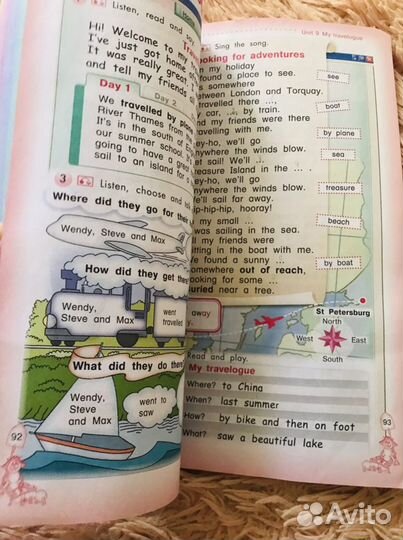 Listen, read and
Hi! Welcome to my
I've just got home
It was really great
and tell my friends
Day 1
Day 2
We travelled by plane
River Thames from
It's in the south of
our summer school
going to have a great
sail to an island for a
3 Listen, choose and
Where did they go for the
Wendy, Steve and Max
How did they get the
Wendy,
Steve and Max
went
travelled
What did they do the
Wendy,
Steve
and Max
went to
saw
92
Unit 9 My travelogue
Sing the song.
ooking for adventures
my holiday
found a place to see.
somewhere
between London and Torquay.
travelled there ...,
car, ... by train.
nd my friends were there
ravelling with me.
ey-ho, we'll go
nywhere the winds blow.
et sail! We'll ...
reasure Island in the ... .
ey-ho, we'll go
nywhere the winds blow.
e'll sail far away.
ip-hip-hip, hooray!
my small ...
was sailing in the sea.
ll my friends were
itting in the boat with me.
e found a sunny ...
omewhere out of reach,
ooking for some ...
uried near a tree.
see
boat
by plane
sea
treasure
beach
by boat
away
St Petersburg
North
West
East
South
Read and play.
My travelogue
Where? to China
When? last summer
How? by bike and then on foot
What? saw a beautiful lake
93
Avito